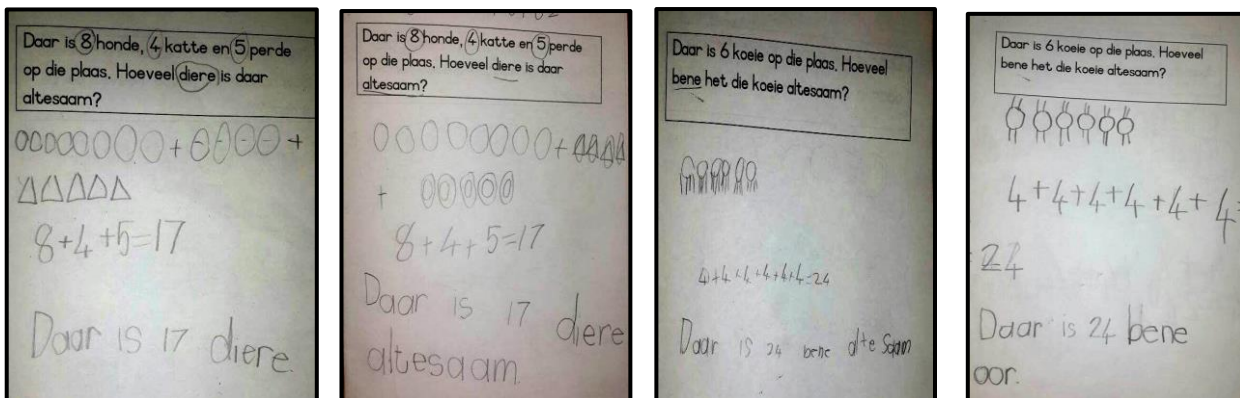 Daar is 8 honde, 4 katte en 5 perde
op die plaas. Hoeveel diere is daar
altesaam?
+ +
8+4+5=17
Daar is 17 diere.
Daar is 8 honde, 4 katte en 5 perde
op die plaas. Hoeveel diere is daar
altesaam?
+
+
8+4+5=17
Daar is 17 diere
altesaam
Daar is 6 koeie op die plaas. Hoeveel
bene het die koeie altesaam?
4+4+4+4+4+4=24
Daar is 24 bene altesaam
Daar is 6 koeie op die plaas. Hoeveel
bene het die koeie altesaam?
4+4+4+4+4+4=
24
Daar is 24 bene
oor.